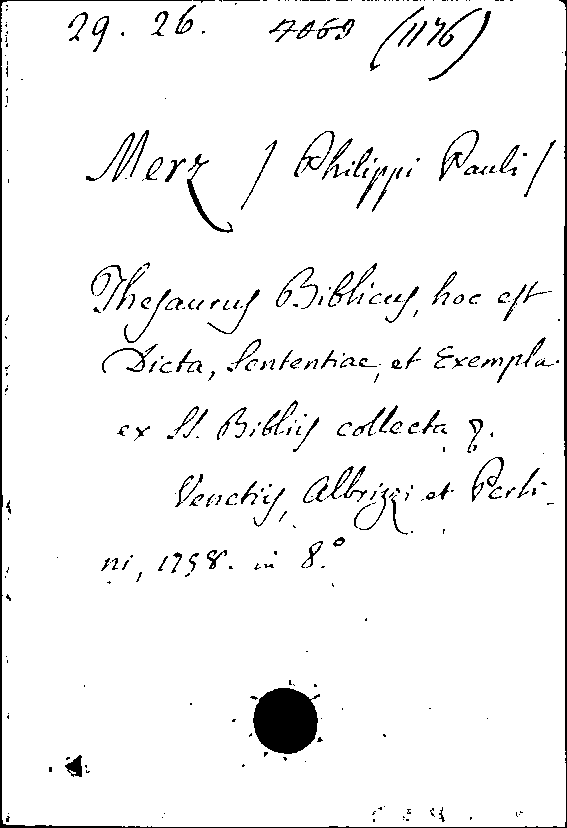 29. 26. 4068 (1176)
Merz / Philippi Pauli /
Thesaurus Biblicus, hoc est
Dicta, Sententiae, et Exempla
ex SS. Bibliis collecta &.
Venetiis, Albrizzi et Perli-
ni, 1758. in 8.°